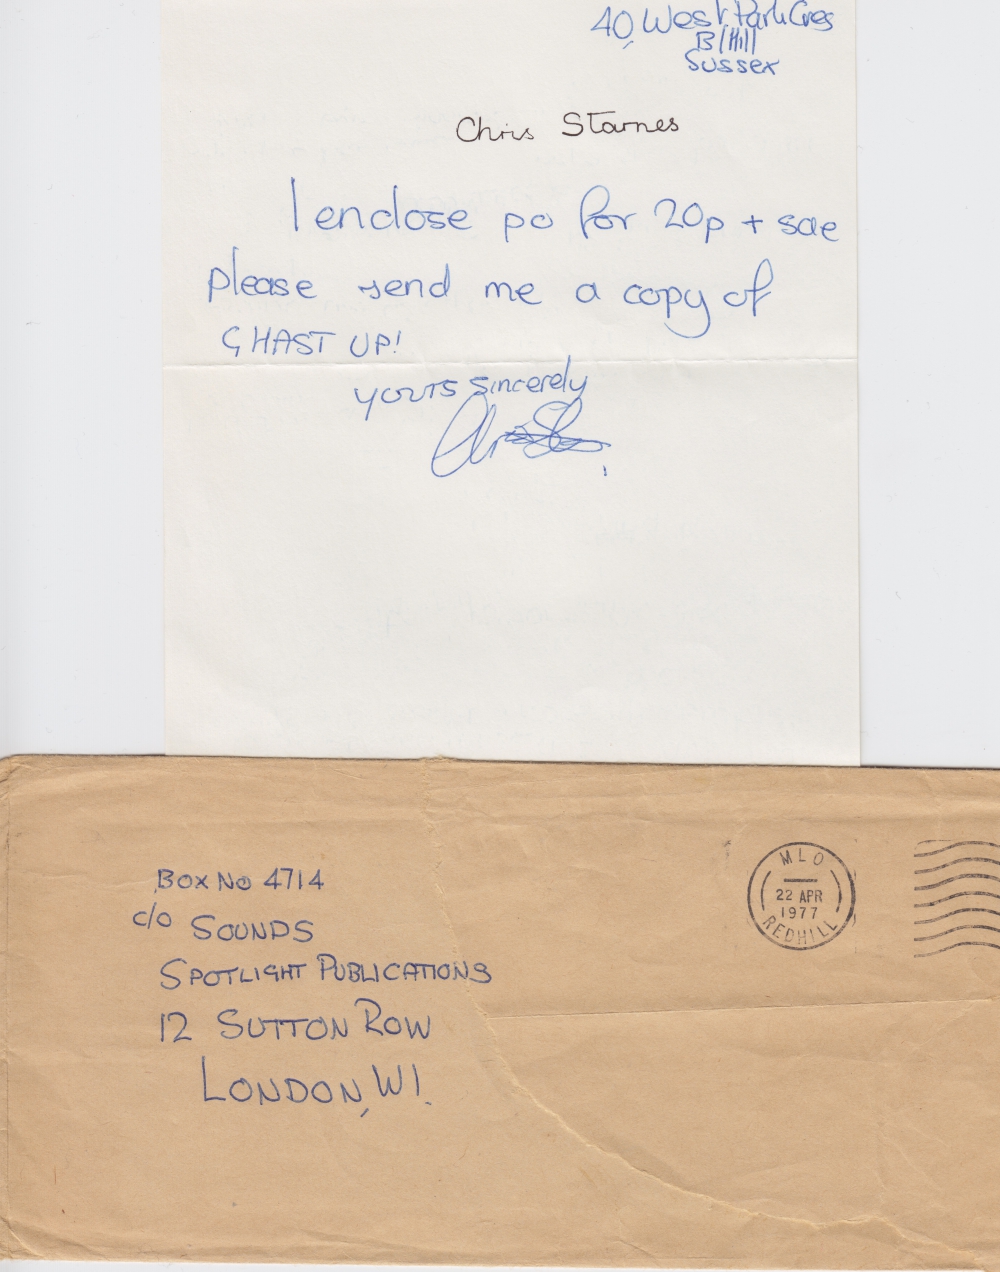 40, West Park Cres
B/Hill
Sussex
Chris Starnes
I enclose po for 20p + sae
please send me a copy of
GHAST UP!
yours sincerely
Box No 4714
c/o SOUNDS
SPOTLIGHT PUBLICATIONS
12 SUTTON ROW
LONDON, W1.
MLO
22 APR
1977
REDHILL